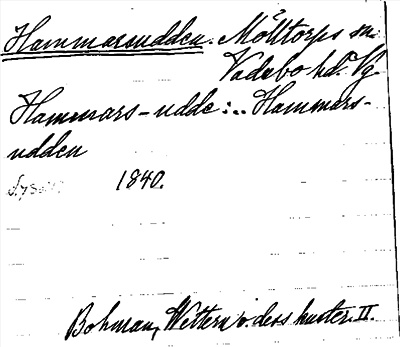 Hammarsudden. Mölltorps sn
Vadsbo hd. Vg.
Hammars-udde :.. Hammars-
udden
1840.
Bohman, Wettern o. dess kuster. II.